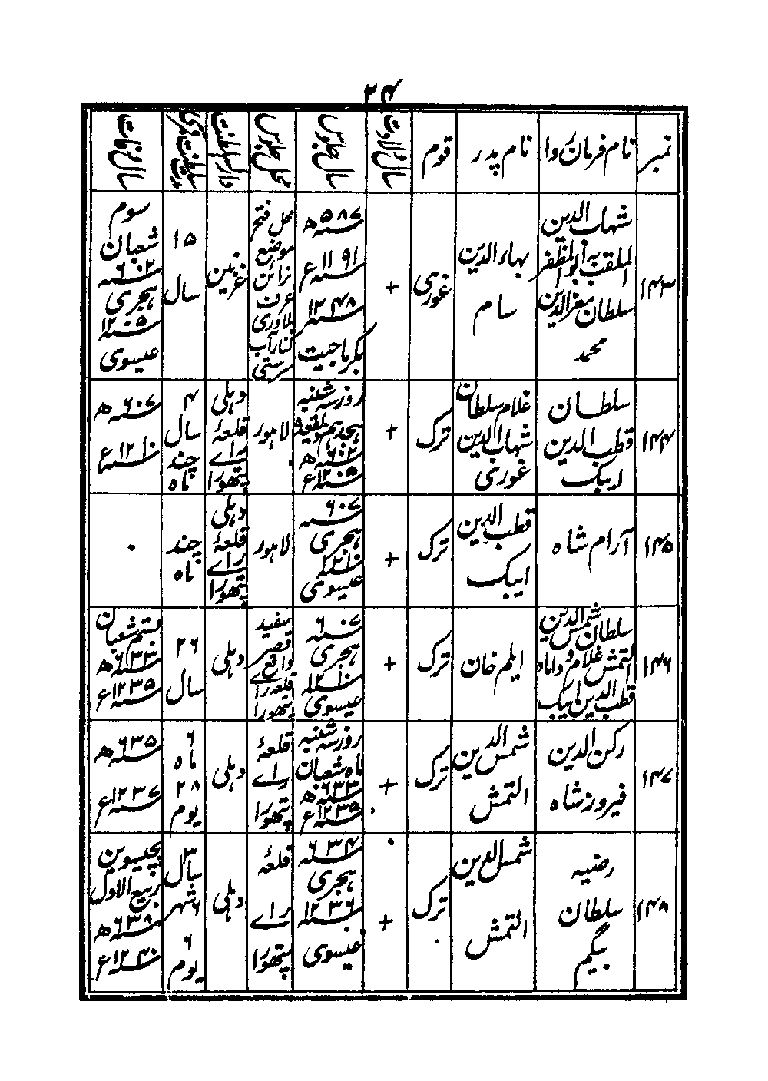 ۲۴
نمبر
نام فرمان روا
نام پدر
قوم
سال ولادت
سال جلوس
محل جلوس
دار السلطنت
سال وفات
۱۴۳
شہاب الدین
الملقب بہ ابو المظفر
سلطان معز الدین
محمد
بہاء الدین
سام
غوری
+
۵۸۷ھ
۱۱۹۱ع
۱۲۴۸
بکرماجیت
محل فتح
موضع
نرائن
عرف
تلاوری
کنار آب
سرستی
غزنین
۱۵
سال
سوم
شعبان
۶۰۲
ہجری
۱۲۰۵
عیسوی
۱۴۴
سلطان
قطب الدین
ایبک
غلام سلطان
شہاب الدین
غوری
ترک
+
روز سہ شنبہ
ہجدہم ذیقعدہ
۶۰۲ھ
۱۲۰۵ع
لاہور
دہلی
قلعۂ
راے
پتھورا
۴
سال
چند
ماہ
۶۰۷ھ
۱۲۱۰ع
۱۴۵
آرام شاہ
قطب الدین
ایبک
ترک
+
۶۰۷
ہجری
۱۲۱۰
عیسوی
لاہور
دہلی
قلعۂ
راے
پتھورا
چند
ماہ
۰
۱۴۶
سلطان شمس الدین
التمش غلام و داماد
قطب الدین ایبک
ایلم خان
ترک
+
۶۰۷
ہجری
۱۲۱۰
عیسوی
سفید
قصر
واقع
قلعہ راے
پتھورا
دہلی
۲۶
سال
شعبان
۶۳۳ھ
۱۲۳۵ع
۱۴۷
رکن الدین
فیروز شاہ
شمس الدین
التمش
ترک
+
روز سہ شنبہ
ماہ شعبان
۶۳۳ھ
۱۲۳۵ع
قلعۂ
راے
پتھورا
دہلی
۶
ماہ
۲۸
یوم
۶۳۵ھ
۱۲۳۷ع
۱۴۸
رضیہ
سلطان
بیگم
شمس الدین
التمش
ترک
+
۶۳۴
ہجری
۱۲۳۶
عیسوی
قلعۂ
راے
پتھورا
دہلی
۳
سال
۶
شہر
۶
یوم
پچیسوین
ربیع الاول
۶۳۸ھ
۱۲۴۰ع